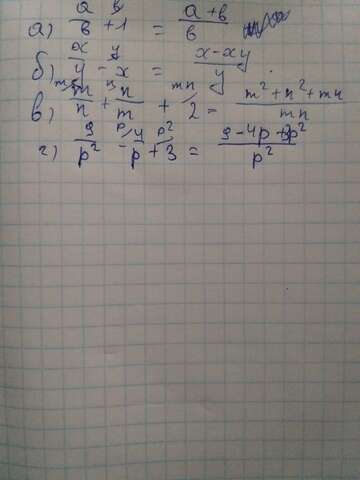 а) a/в + 1 = (a+в)/в
б) x/y - x = (x-xy)/y
в) m/n + n/m + 2 = (m²+n²+mn)/mn
г) 9/p² - 4/p + 3 = (9-4p+3p²)/p²